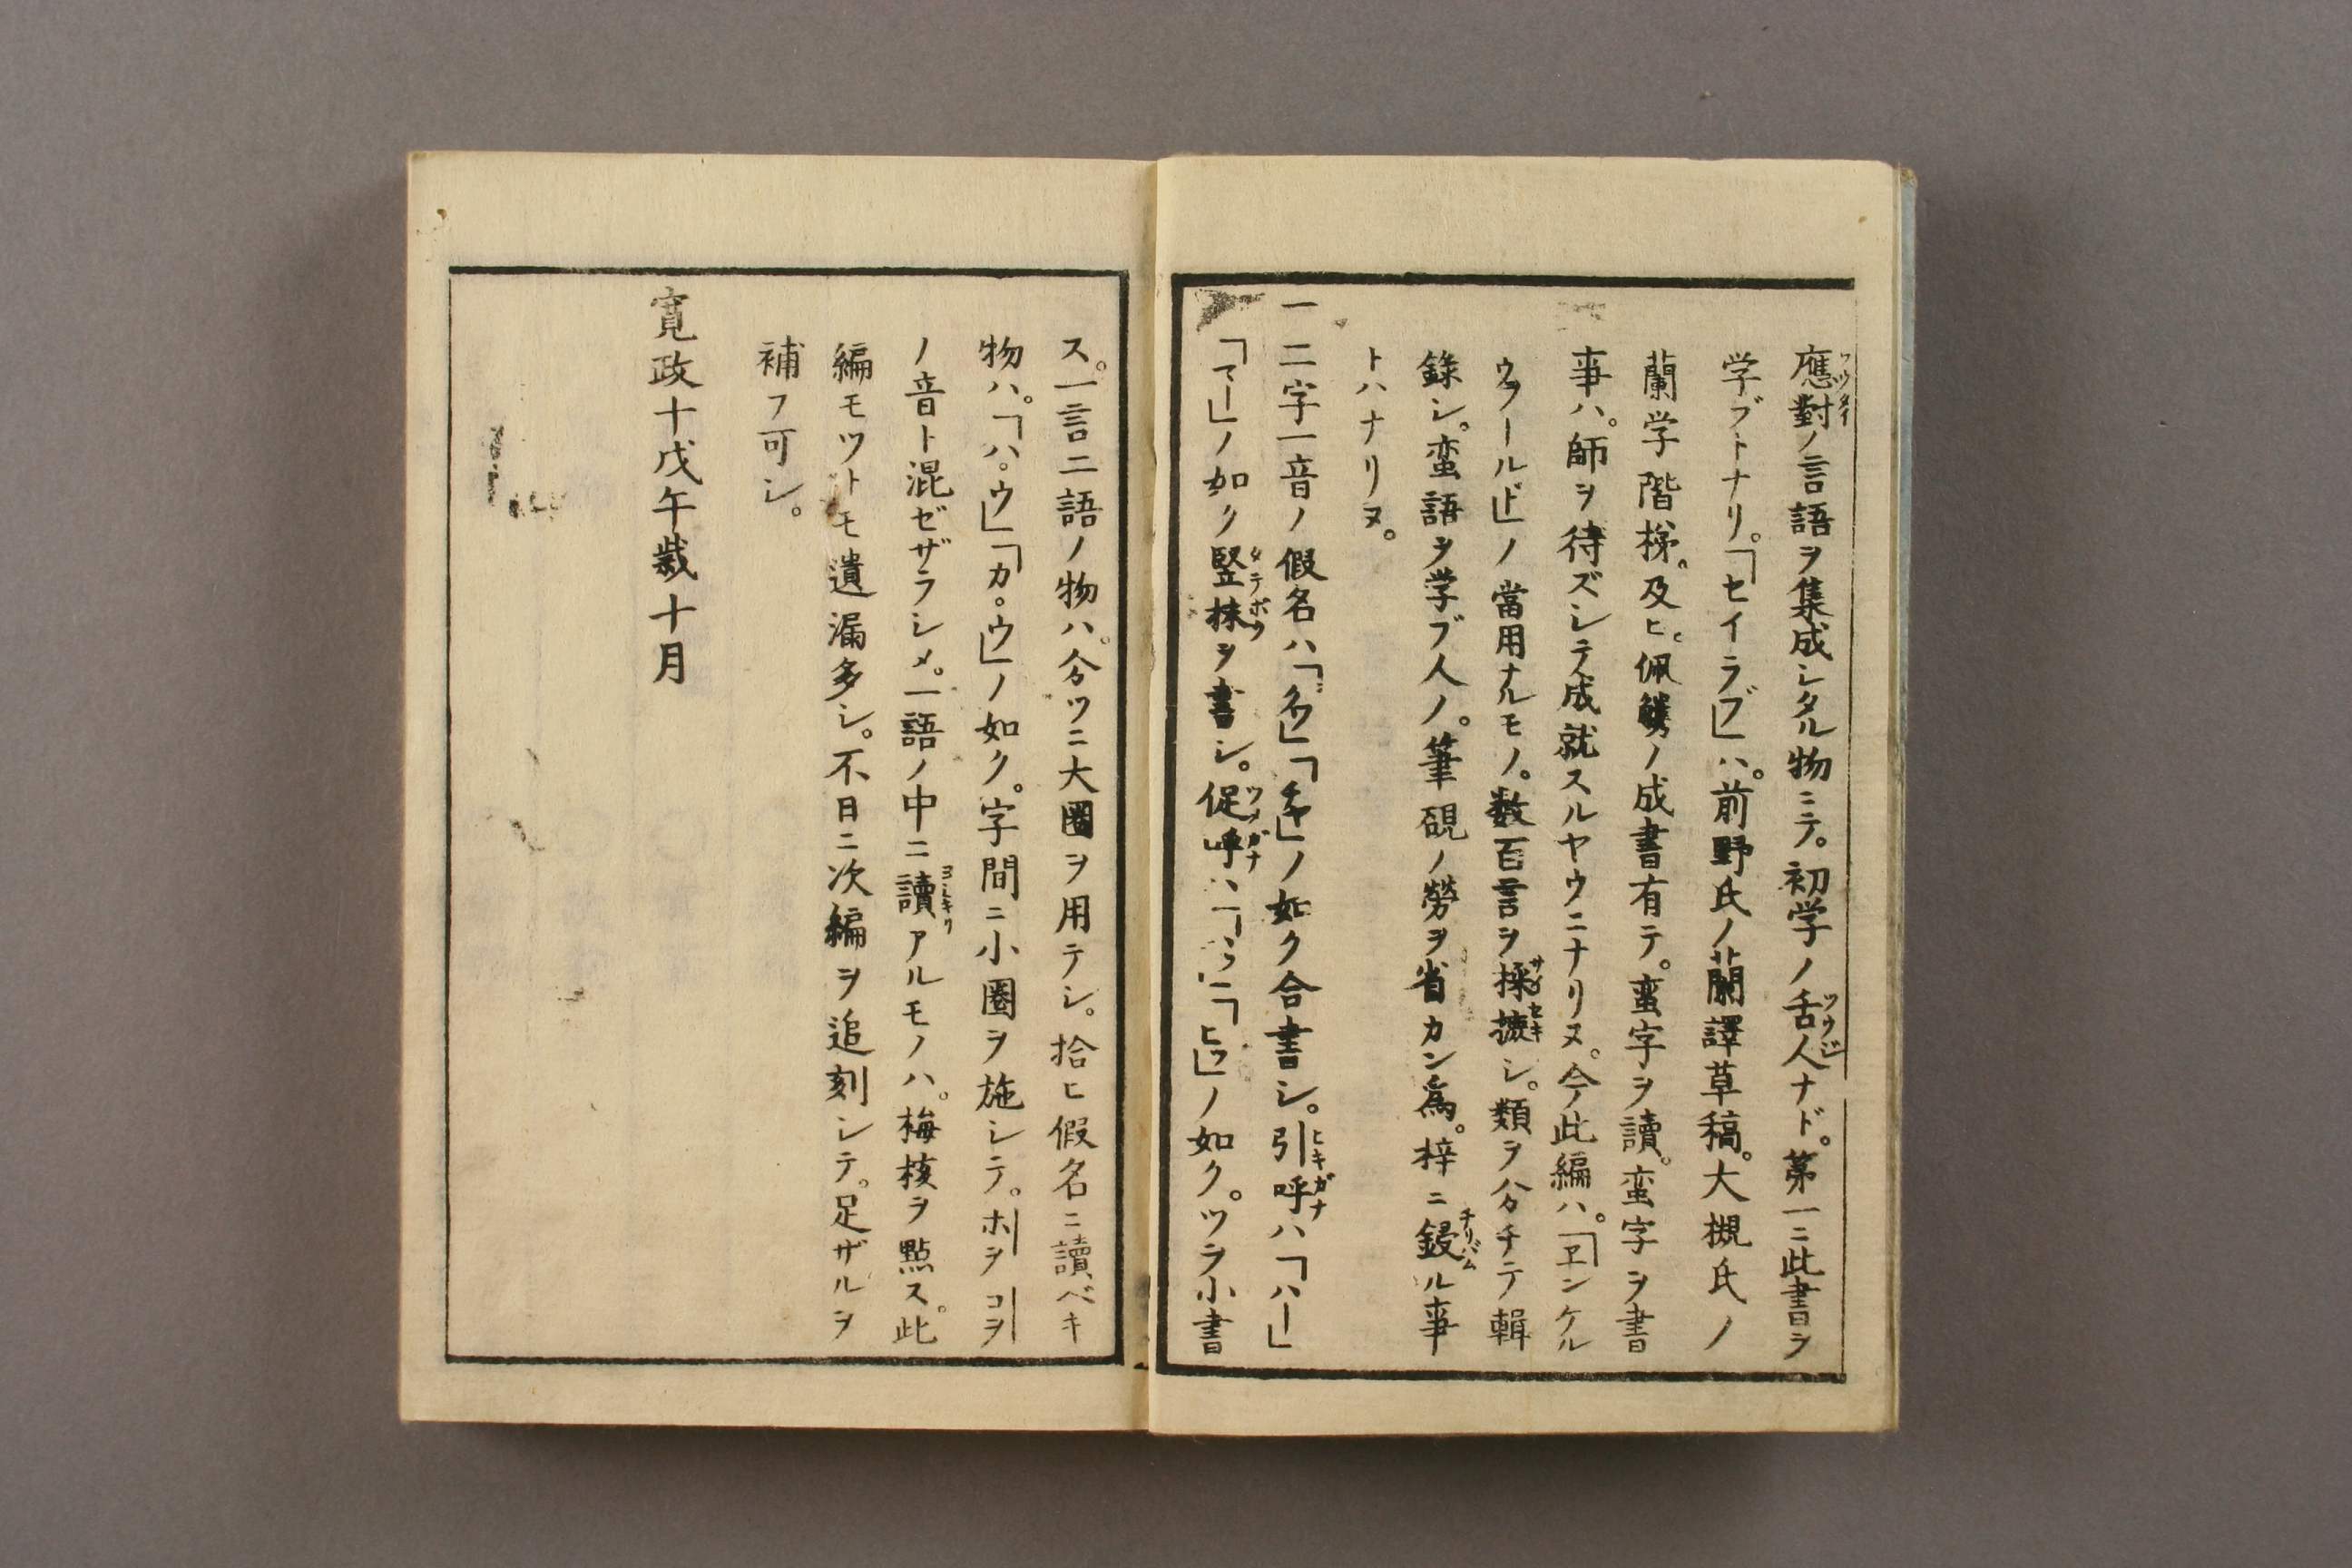 應對ノ言語ヲ集成シタル物ニテ。初学ノ舌人ナド。第一ニ此書ヲ
学ブトナリ。「セイラブ」ハ。前野氏ノ蘭譯草稿。大槻氏ノ
蘭学階梯。及ヒ。佩觿ノ成書有テ。蛮字ヲ讀。蛮字ヲ書
事ハ。師ヲ待ズシテ成就スルヤウニナリヌ。今此編ハ。「ヱンケル
ウヲールド」ノ當用ナルモノ。数百言ヲ採摭シ。類ヲ分チテ輯
錄シ。蛮語ヲ学ブ人ノ。筆硯ノ勞ヲ省カン爲。梓ニ鋟ル事
トハナリヌ。
一 二字一音ノ假名ハ「」「」ノ如ク合書シ。引呼ハ「ハー」
「マー」ノ如ク竪抹ヲ書シ。促呼ハ「」「ヒッ」ノ如ク。ツヲ小書
ス。一言二語ノ物ハ。分ツニ大圏ヲ用テシ。拾ヒ假名ニ讀ベキ
物ハ。「ハ。ウ」「カ。ウ」ノ如ク。字間ニ小圏ヲ施シテ。ホヲコヲ
ノ音ト混ゼザラシメ。一語ノ中ニ讀アルモノハ。梅核ヲ點ス。此
編モツトモ遺漏多シ。不日ニ次編ヲ追刻シテ。足ザルヲ
補フ可シ。
寛政十戊午歳十月